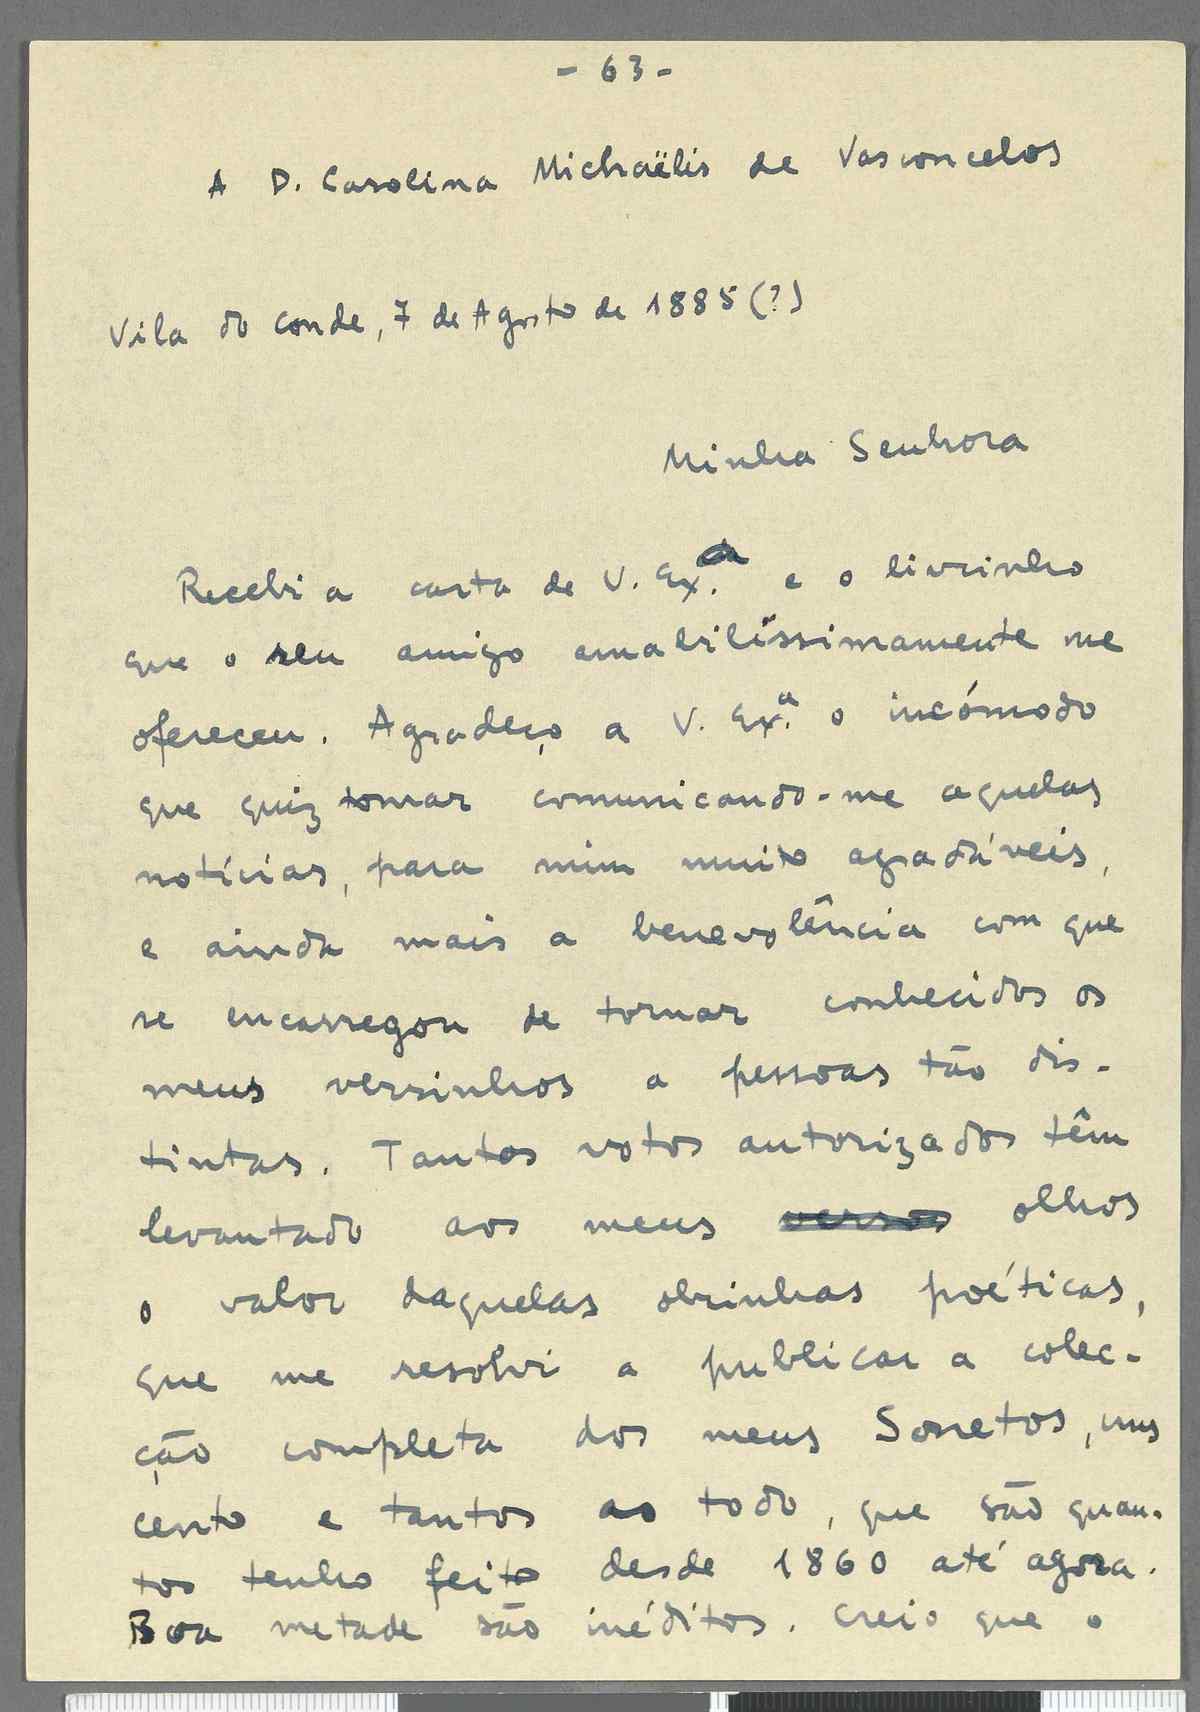 - 63 -
A D. Carolina Michaëlis de Vasconcelos
Vila do Conde, 7 de Agosto de 1885 (?)
Minha Senhora
Recebi a carta de V. Ex.ª e o livrinho
que o seu amigo amabilíssimamente me
ofereceu. Agradeço a V. Ex.ª o incómodo
que quiz tomar comunicando-me aquelas
notícias, para mim muito agradáveis,
e ainda mais a benevolência com que
se encarregou de tornar conhecidos os
meus versinhos a pessoas tão dis-
tintas. Tantos votos autorizados têm
levantado aos meus versos olhos
o valor daquelas obrinhas poéticas,
que me resolvi a publicar a colec-
ção completa dos meus Sonetos, uns
cento e tantos ao todo, que são quan-
tos tenho feito desde 1860 até agora.
Boa metade são inéditos. Creio que o